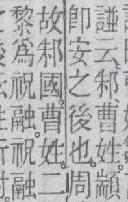 謹云邾曹姓顓
卽安之後也周
故邾國曹姓二
黎爲祝融祝融